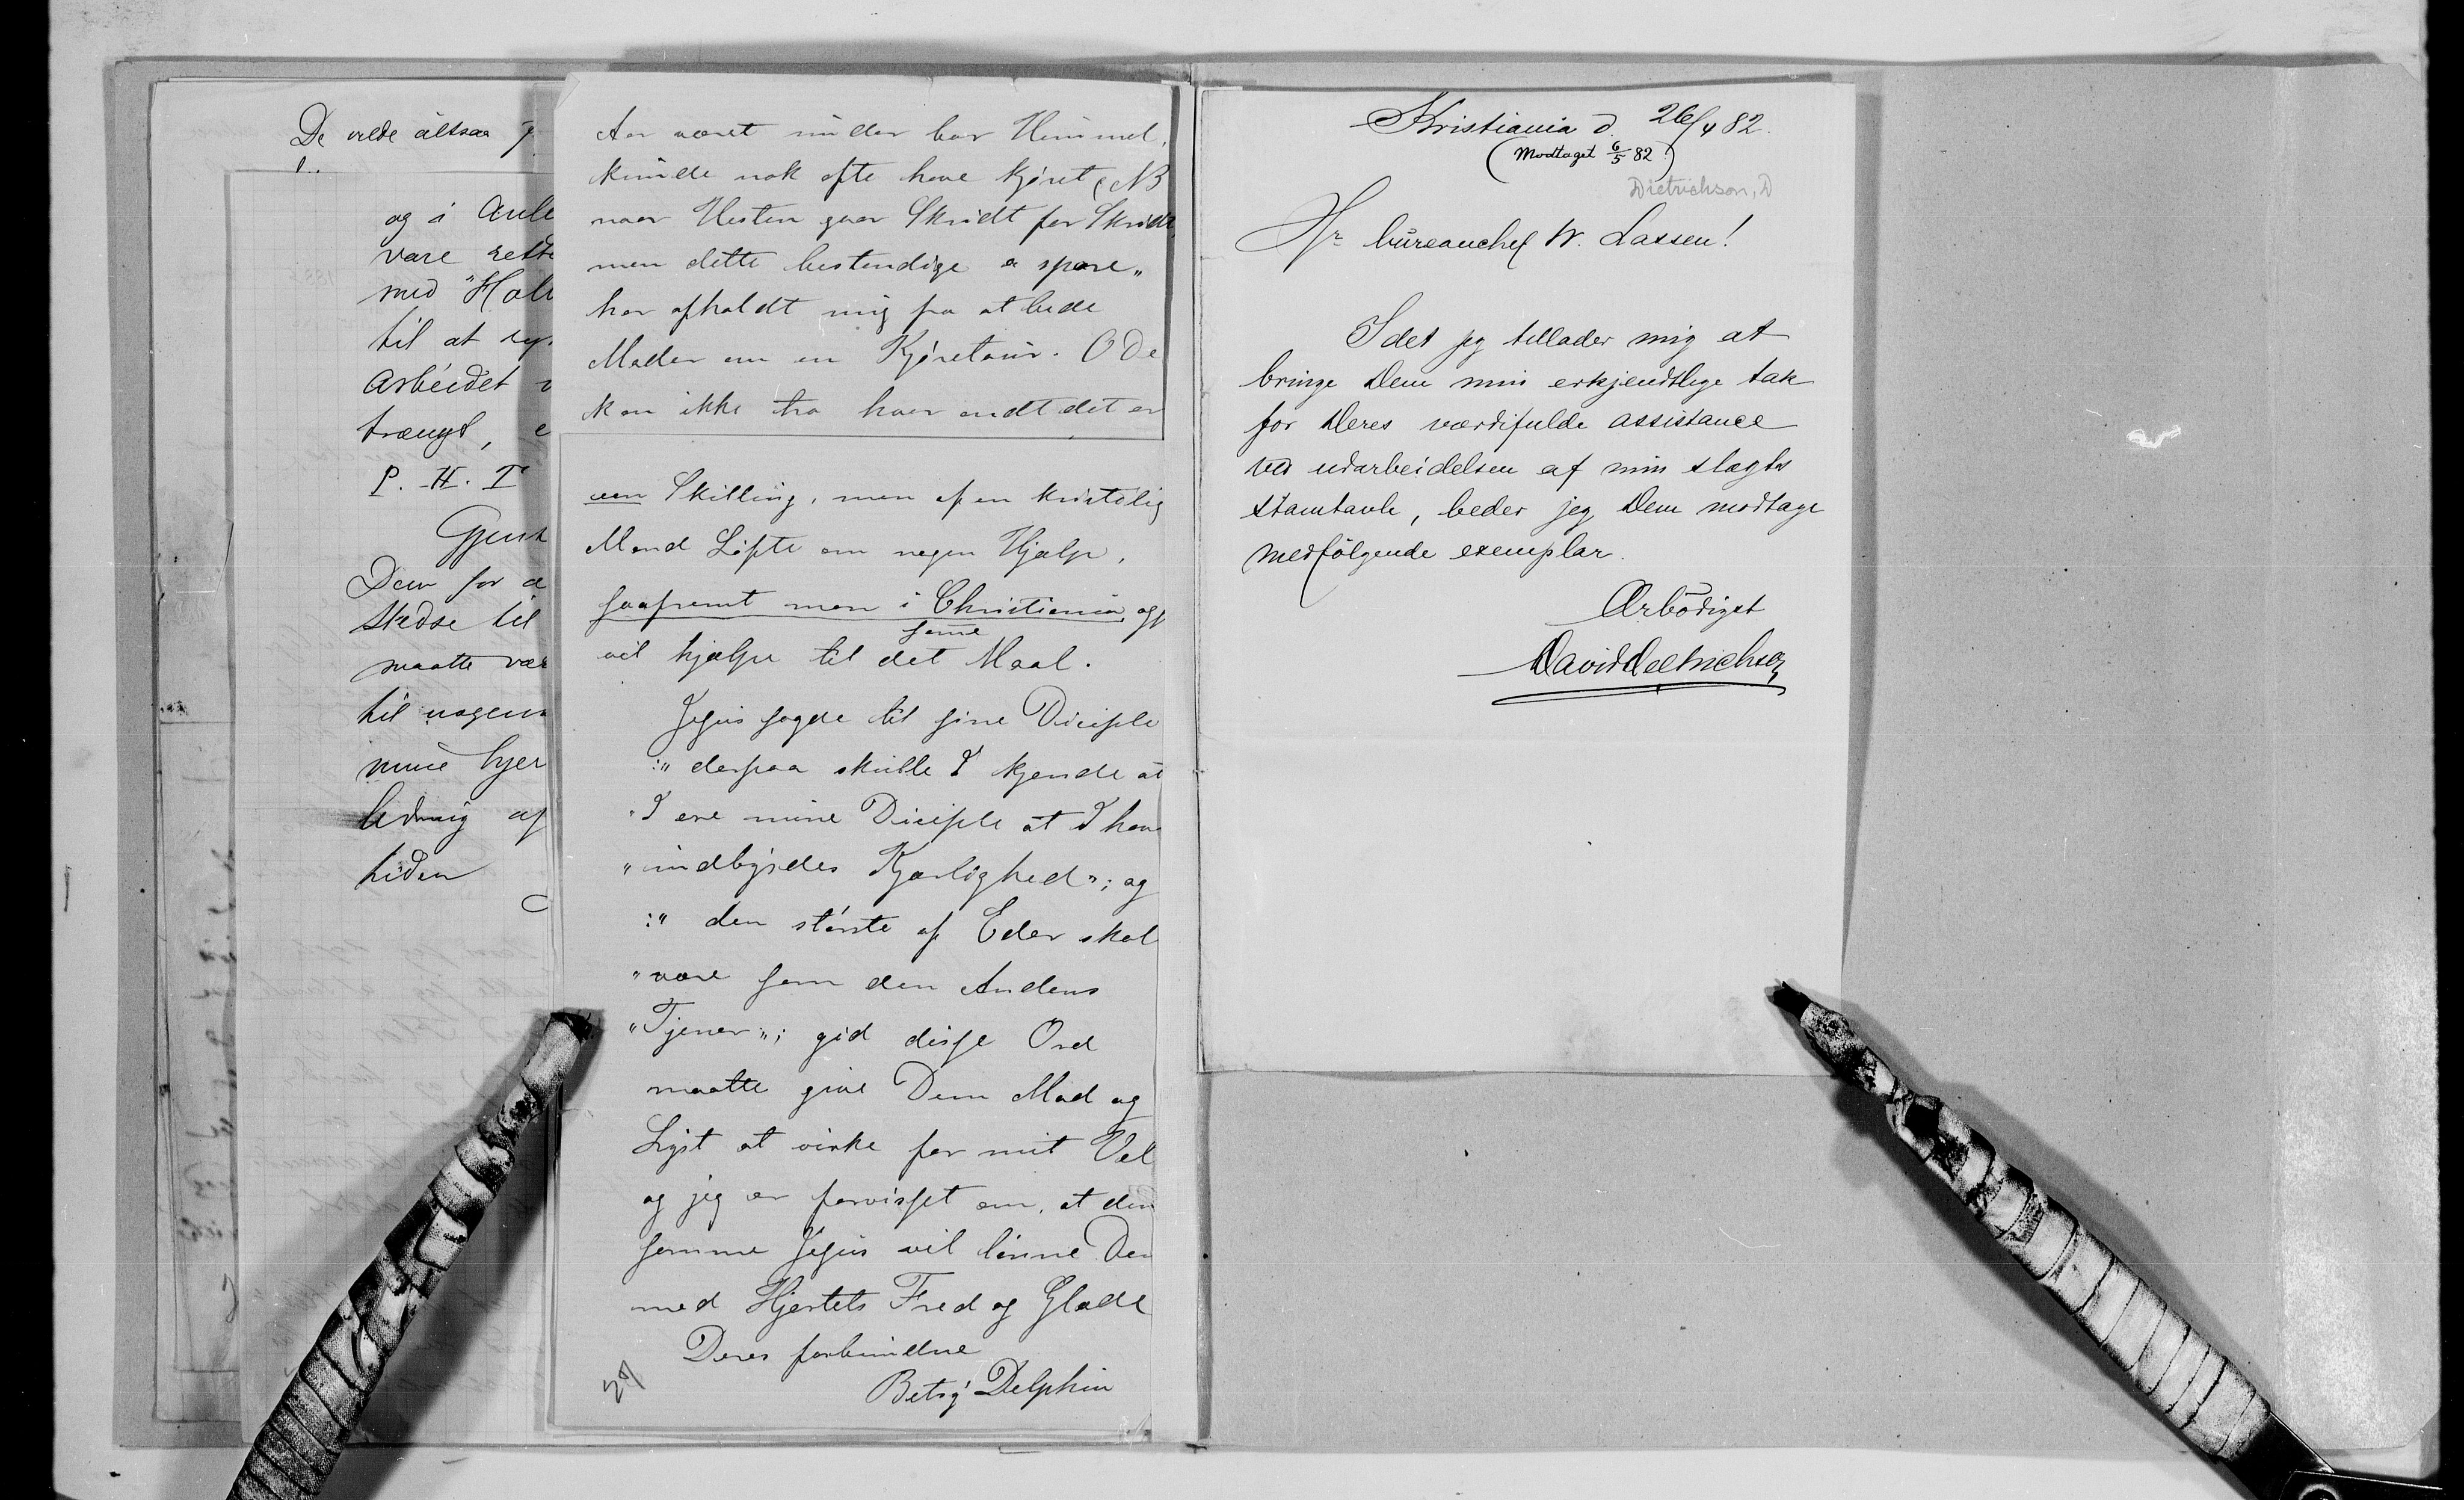 De vilde altsaa
og i Anle
være rette
med "Hal
til at
Arbeidet
trængt, e
P. H. T
Gjent
Dem for
Stedse til
maatte vær
til nogen
mine hjer
ledning af
tiden
Aar været under bar Himmel,
kunde nok ofte have kjøret (NB
naar Hesten gaar Skridt for Skridt,
men dette bestendige a spare„
har afholdt mig fra at bede
Moder om en Kjøretour. O De
kan ikke tro hvor ondt det er
een Skilling, men af en kristelig
Mand Løfte om nogen Hjælp,
saafremt man i Christiania og
vil hjælpe til det samme Maal.
Jesus sagde til sine Diciple
:" derpaa skulle I kjende at
"I ere mine Diciple at I have
"indbyrdes Kjærlighed"; og
:" den største af Eder skal
"være som den Andens
"Tjener„; gid disse Ord
maatte give Dem Mod og
Lyst at virke for mit Vel
og jeg er forvisset om, at den
samme Jesus vil lønne Dem
med Hjertets Fred og Glæde
Deres forbundne
Betsy Delphin
Kristiania d. 26/4 82.
(Modtaget 6/5 82)
Dietrichson, D
Hr bureauchef W. Lassen!
Idet jeg tillader mig at
bringe Dem min erkjendtlige tak
for Deres værdifulde assistance
ved udarbeidelsen af min slægts
stamtavle, beder jeg Dem modtage
medfölgende exemplar.
Ærbödigst
David Dietrichson